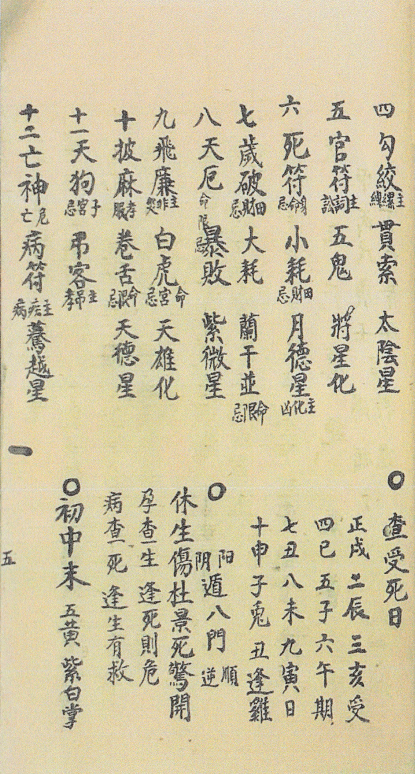 四勾絞主纏繞貫索 太陰星
五官符主詞訟五鬼 將星化
六死符身命忌小耗田財忌月德星主化凶
七歲破田財忌大耗 蘭干並命限忌
八天厄命限忌暴敗 紫微星
九飛廉主非災白虎命宮忌天雄化
十披麻孝服卷舌命限忌天德星
十一天狗子宮忌弔客主孝弔
十二亡神危亡病符主疾病驀越星
○查受死日
正戌二辰三亥受
四巳五子六午期
七丑八未九寅日
十申子兔丑逢雞
○阳順阴逆遁八門
休生傷杜景死驚開
孕查一生 逢死則危
病查一死 逢生有救
○初中末 五黄 紫白掌
五